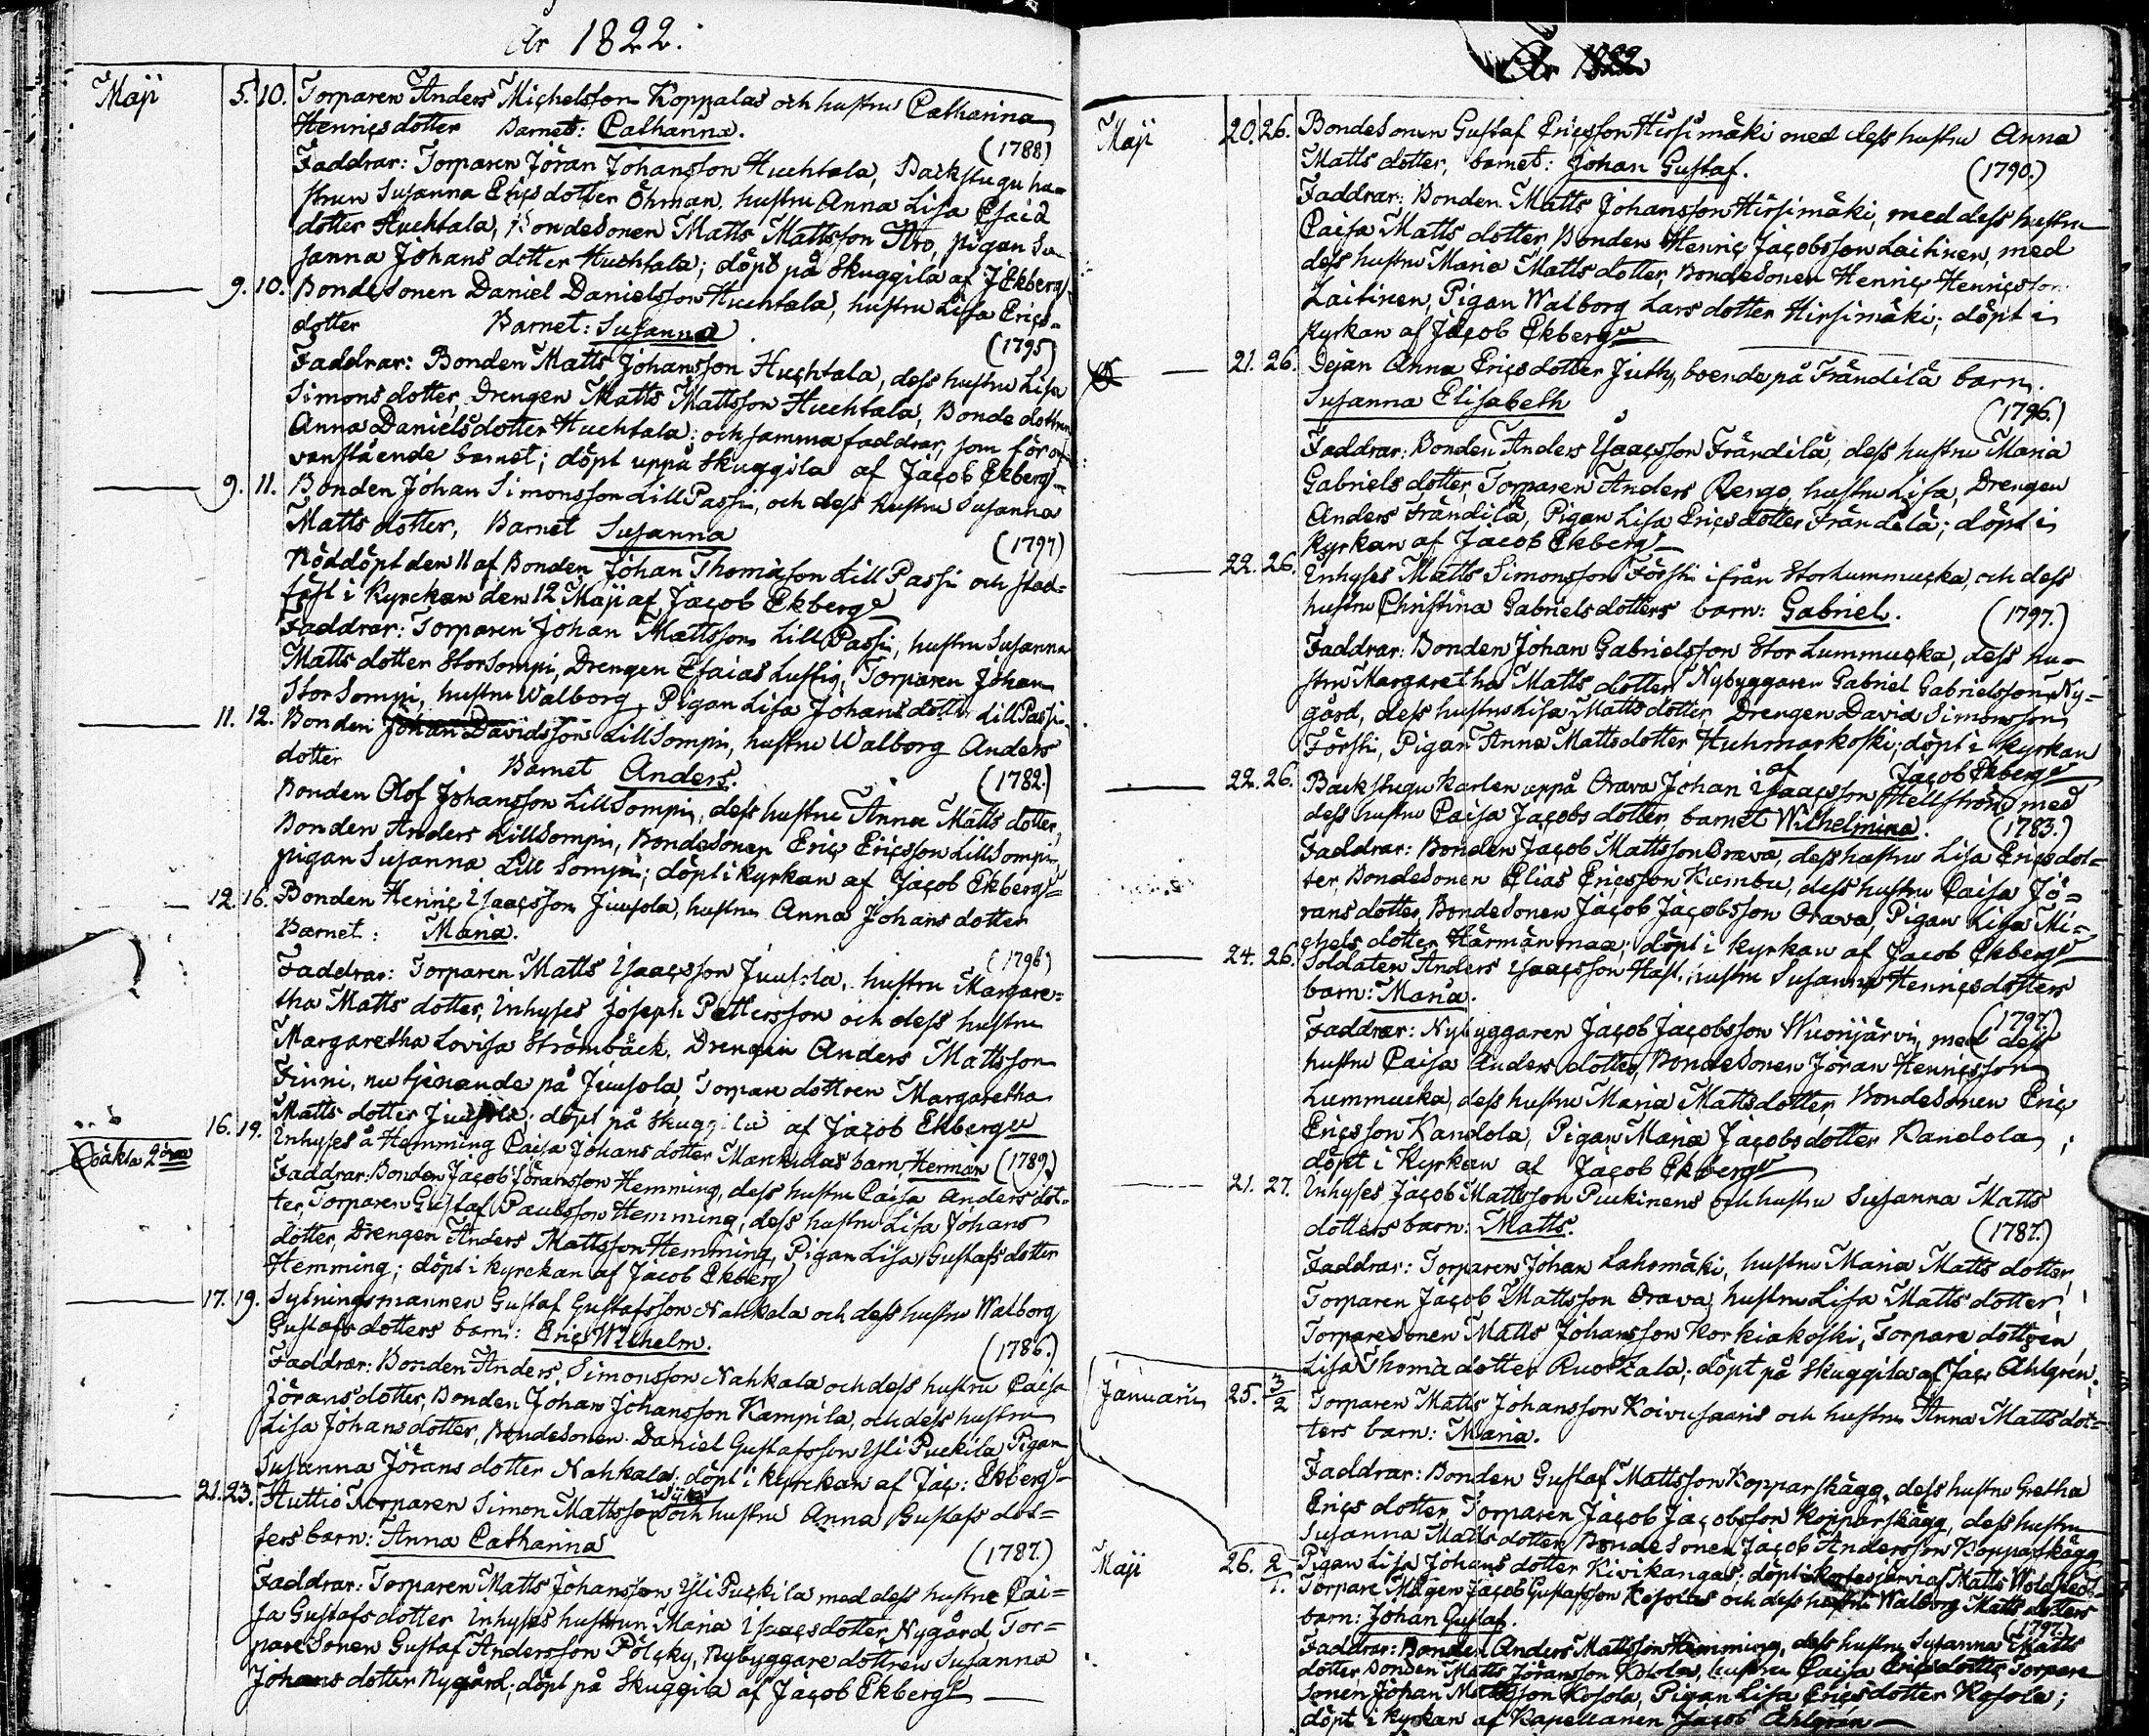 År 1822.
Maji 5. 10. Torparen Anders Michelsson Koppalas och hustru Catharina
Henriçsdotter Barnet: Catharina.
(1788)
Faddrar: Torparen Jöran Johansson Huchtala, Backstugu hu=
strun Susanna Ericsdotter Öhman, hustru Anna Lisa Esaiæ
dotter Huchtala, Bondesonen Matts Mattsson Aro, pigan Su=
sanna Johansdotter Huchtala; döpt på Skuggila af J Ekberg
9. 10. Bondesonen Daniel Danielsson Huchtala, hustru Lisa Erics=
dotter Barnet: Susanna
(1795)
Faddrar: Bonden Matts Johansson Huchtala, dess hustru Lisa
Simonsdotter, Drengen Matts Mattsson Huchtala, Bonde dottren
Anna Danielsdotter Huchtala; och samma faddrar, som för o=
vanstående barnet; döpt uppå Skuggila af Jacob Ekberg
9. 11. Bonden Johan Simonsson Lill Passi, och dess hustru Susanna
Matts dotter, Barnet Susanna
(1797)
Nöddöpt den 11 af Bonden Johan Thomasson Lill Passi och stad=
fäst i Kyrckan den 12 Maji af Jacob Ekberg
Faddrar: Torparen Johan Mattsson Lill Passi, hustru Susanna
Matts dotter Storsompi, Drengen Esaias Lustig, Torparen Johan
Stor Sompi, hustru Walborg, Pigan Lisa Johansdotter Lill Passi
11. 12. Bonden Johan Davidsson Lillsompi, hustru Walborg Anders
dotter Barnet Anders.
(1782.)
Bonden Olof Johansson Lillsompi, dess hustru Anna Matts dotter,
Bonden Anders Lillsompi, Bondesonen Eriç Ericsson Lillsompi,
pigan Susanna Lill Sompi; döpt i kyrkan af Jacob Ekberg
12. 16. Bonden Henriç Isaacsson Juusola, hustru Anna Johans dotter
Barnet: Maria.
(1798)
Faddrar: Torparen Matts Isaacsson Juusola, hustru Margare=
tha Matts dotter, Inhyses Joseph Pettersson och dess hustru
Margaretha Lovisa Strömbäck, Drengen Anders Mattsson
Finni, nu tjenande på Juusola, Torpare dottren Margaretha
Matts dotter Juusola; döpt på Skuggila af Jacob Ekberg
16. 19. Inhyses å Hemming Caisa Johans dotter Mankulas barn, Herman (1789)
Oäkta
Faddrar: Bonden Jacob Jöransson Hemming, dess hustru Caisa Anders dot=
ter, Torparen Gustaf Paulsson Hemming, dess hustru Lisa Johans
dotter, Drengen Anders Mattsson Hemming, Pigan Lisa Gustafsdotter
Hemming; döpt i kyrckan af Jacob Ekberg
17. 19. Sytningsmannen Gustaf Gustafsson Nahkala och dess hustru Walborg
Gustafs dotters barn: Eriç Wilhelm.
(1786.)
Faddrar: Bonden Anders Simonsson Nahkala och dess hustru Caisa
Jörans dotter, Bonden Johan Johansson Kampila, och dess hustru
Lisa Johansdotter, Bondesonen Daniel Gustafsson Yli Puckila Pigan
Susanna Jörans dotter Nahkala; döpt i kyrckan af Jaç: Ekberg
21. 23. Huttio Torparen Simon Mattsson och hustru Anna Gustafs dot=
ters barn: Anna Catharina
(1787.)
Faddrar: Torparen Matts Johansson Yli Puckila med dess hustru Cai=
sa Gustafsdotter Inhyses hustrun Maria Isaacsdotter Nygård Tor=
pare Sonen Gustaf Andersson Pölcky, Nybyggare dottren Susanna
Johans dotter Nygård; döpt på Skuggila af Jacob Ekberg
År 1822
Maji 20. 26. Bondesonen Gustaf Ericsson Hirsimäki med dess hustru Anna
Matts dotter, barnet: Johan Gustaf.
(1790.)
Faddrar: Bonden Matts Johansson Hirsimäki, med dess hustru
Caisa Matts dotter, Bonden Henriç Jacobsson Laitinen, med
dess hustru Maria Matts dotter, Bondesonen Henriç Henricsson
Laitinen, Pigan Walborg Lars dotter Hirsimäki; döpt i
kyrkan af Jacob Ekberg
21. 26. Dejan Anna Ericsdotter Juthy, boende på Frändilä barn.
Susanna Elisabeth
(1796.)
Faddrar: Bonden Anders Isaacsson Frändilä, dess hustru Maria
Gabriels dotter, Torparen Anders Rengo, hustru Lisa, Drengen
Anders Frändilä, Pigan Lisa Ericsdotter Frändilä; döpt i
kyrkan af Jacob Ekberg
22. 26. Inhyses Matts Simonsson Försti ifrån Storlummucka, och dess
hustru Christina Gabrielsdotters barn: Gabriel.
(1797.)
Faddrar: Bonden Johan Gabrielsson Stor Lummucka, dess hu=
stru Margaretha Matts dotter Nybyggaren Gabriel Gabrielsson Ny=
gård, dess hustru Lisa Matts dotter, Drengen David Simonsson
Försti, Pigan Anna Mattsdotter Huhmarkoski; döpt i kyrkan
af Jacob Ekberg
22. 26. Backstugukarlen uppå Orava Johan Isaacsson Hellström med
dess hustru Caisa Jacobs dotter barnet Wilhelmina.
(1783.)
Faddrar: Bonden Jacob Mattsson Orava, dess hustru Lisa Ericsdot=
ter, Bondesonen Elias Ericsson Kumbu, dess hustru Caisa Jö=
rans dotter, Bondesonen Jacob Jacobsson Orava, Pigan Lisa Mi=
chels dotter Härmänmaa; döpt i kyrkan af Jacob Ekberg
24. 26. Soldaten Anders Isaacsson Hast, hustru Susanna Henricsdotters
barn: Maria.
(1797.)
Faddrar: Nybyggaren Jacob Jacobsson Wuorijärvi, med dess
hustru Caisa Anders dotter, Bondesonen Jöran Henricsson
Lummucka, dess hustru Maria Mattsdotter, Bondesonen Eriç
Ericsson Kandola, Pigan Maria Jacobsdotter Kandola;
döpt i kyrkan af Jacob Ekberg
21. 27. Inhyses Jacob Mattsson Puckinens och hustru Susanna Matts
dotters barn: Matts.
(1787.)
Faddrar: Torparen Johan Lahomäki, hustru Maria Matts dotter,
Torparen Jacob Mattsson Orava, hustru Lisa Matts dotter,
Torparesonen Matts Johansson Korkiakoski, Torpare dottren
Lisa Thomæ dotter; döpt på Skuggila af Jaç Ahlgren.
Januarii 25. 3/2 Torparen Matts Johansson Koivusaaris och hustru Anna Mattsdot=
ters barn: Maria.
Faddrar: Bonden Gustaf Mattsson Kopparskägg, dess hustru Gretha
Erics dotter, Torparen Jacob Jacobsson Kopparskägg, dess hustru
Susanna Mattsdotter, Bondesonen Jacob Andersson Kopparskägg
Pigan Lisa Johans dotter Kivikangas; döpt i af Matts
Maji 26. 2/ Torpare Mågen Jacob Gustafsson Kosolas och dess hustru Walborg Matts dotters
barn: Johan Gustaf.
(1797.)
Faddrar: Bonden Anders Mattsson Hemming, dess hustru Susanna Matts
dotter Bonden Matts Jöransson Kosola, hustru Caisa Ericsdotter Torpare
Sonen Johan Mattsson Kosola, Pigan Lisa Ericsdotter Kosola;
döpt i kyrkan af Kapellanen Jacob Ahlgren